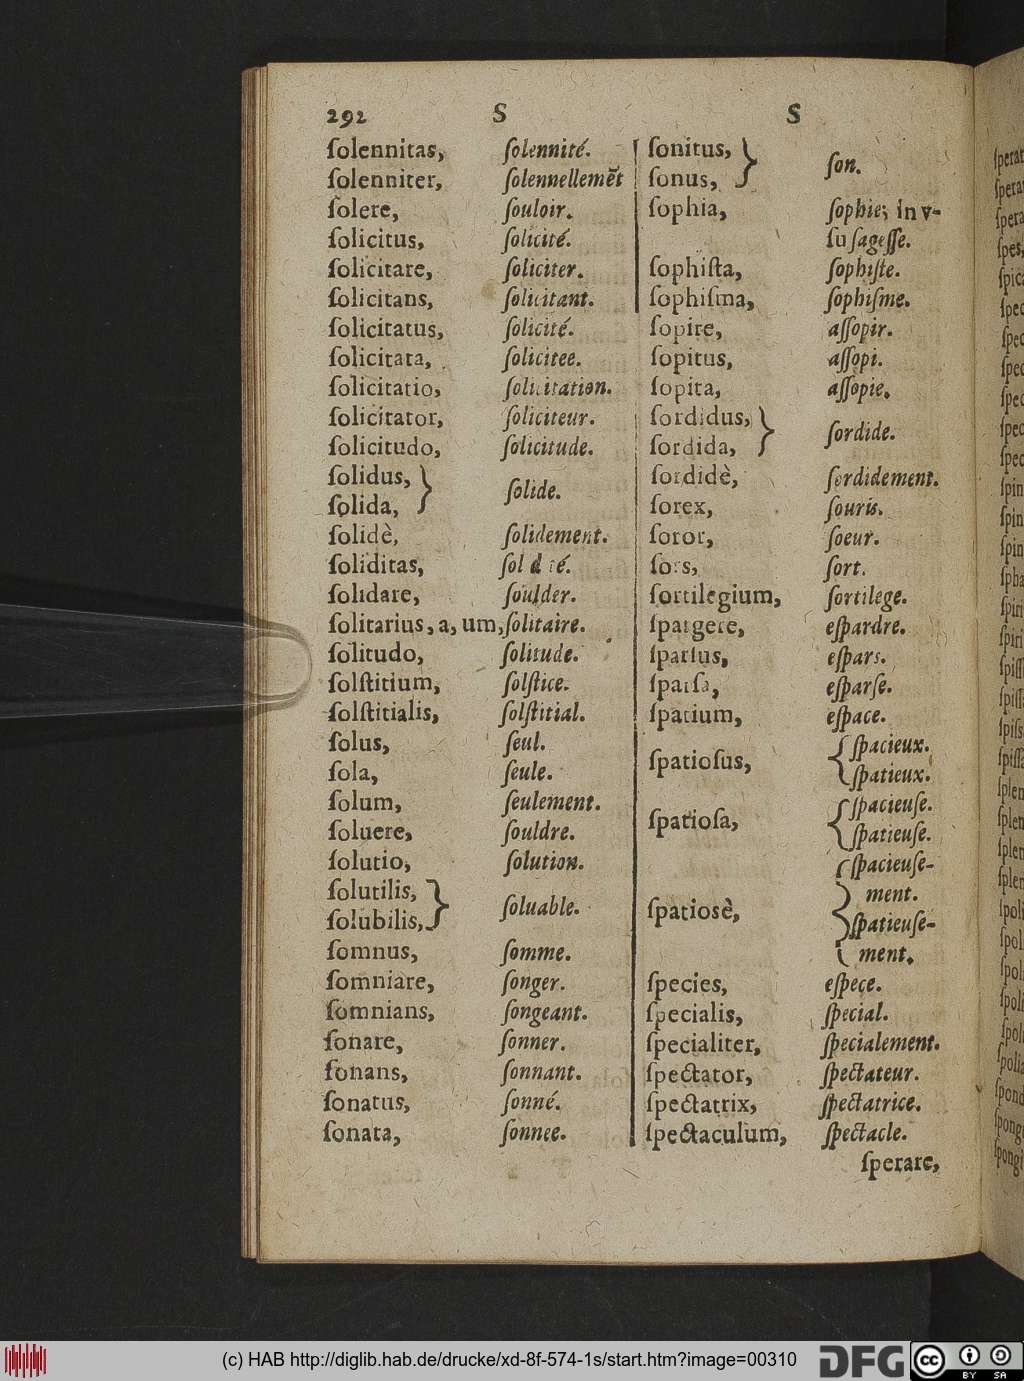 292 S S
ſolennitas, ſolennité.
ſolenniter, ſolennellemẽt
ſolere, ſouloir.
ſolicitus, ſolicité.
ſolicitare, ſoliciter.
ſolicitans, ſolicitant.
ſolicitatus, ſolicité.
ſolicitata, ſolicitee.
ſolicitatio, ſolicitation.
ſolicitator, ſoliciteur.
ſolicitudo, ſolicitude.
ſolidus,
ſolida, } ſolide.
ſolidè, ſolidement.
ſoliditas, ſol d té.
ſolidare, ſoulder.
ſolitarius, a, um, ſolitaire.
ſolitudo, ſolitude.
ſolſtitium, ſolſtice.
ſolſtitialis, ſolſtitial.
ſolus, ſeul.
ſola, ſeule.
ſolum, ſeulement.
ſoluere, ſouldre.
ſolutio, ſolution.
ſolutilis,
ſolubilis, } ſoluable.
ſomnus, ſomme.
ſomniare, ſonger.
ſomnians, ſongeant.
ſonare, ſonner.
ſonans, ſonnant.
ſonatus, ſonné.
ſonata, ſonnee.
ſonitus,
ſonus, } ſon.
ſophia, ſophie; in v-
ſu ſageſſe.
ſophiſta, ſophiſte.
ſophiſma, ſophiſme.
ſopire, aſſopir.
ſopitus, aſſopi.
ſopita, aſſopie.
ſordidus,
ſordida, } ſordide.
ſordidè, ſordidement.
ſorex, ſouris.
ſoror, ſoeur.
ſors, ſort.
ſortilegium, ſortilege.
ſpargere, eſpardre.
ſparſus, eſpars.
ſparſa, eſparſe.
ſpatium, eſpace.
ſpatioſus, { ſpacieux.
ſpatieux.
ſpatioſa, { ſpacieuſe.
ſpatieuſe.
ſpatiosè, { ſpacieuſe-
ment.
ſpatieuſe-
ment.
ſpecies, eſpece.
ſpecialis, ſpecial.
ſpecialiter, ſpecialement.
ſpectator, ſpectateur.
ſpectatrix, ſpectatrice.
ſpectaculum, ſpectacle.
ſperare,
(c) HAB http://diglib.hab.de/drucke/xd-8f-574-1s/start.htm?image=00310
DFG
cc BY SA